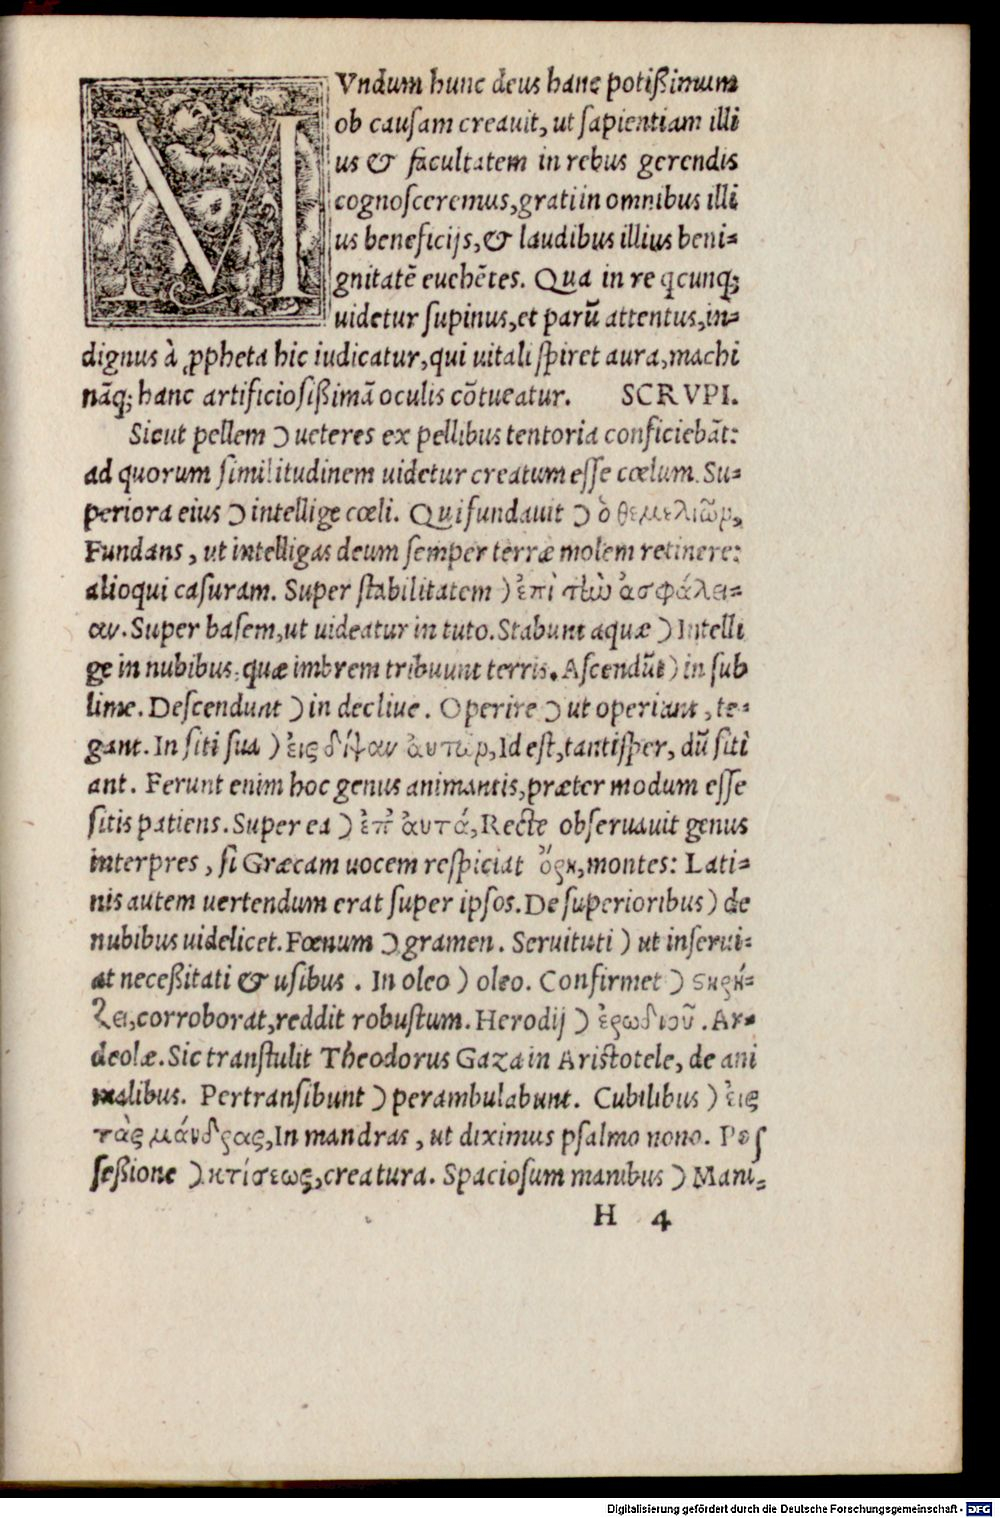 MVndum hunc deus hanc potißimum
ob causam creauit, ut sapientiam illi
us & facultatem in rebus gerendis
cognosceremus, grati in omnibus illi
us beneficijs, & laudibus illius beni-
gnitatē euehētes. Qua in re qcunq;
uidetur supinus, et parū attentus, in-
dignus à ꝓpheta hic iudicatur, qui uitali spiret aura, machi
nāq; hanc artificiosißimā oculis cōtueatur. SCRVPI.
Sicut pellem Ɔ ueteres ex pellibus tentoria conficiebāt:
ad quorum similitudinem uidetur creatum esse cœlum. Su-
periora eius Ɔ intellige cœli. Qui fundauit Ɔ ὁ θεμελιῶν,
Fundans, ut intelligas deum semper terræ molem retinere:
alioqui casuram. Super stabilitatem ) ἐπὶ τὼ ἀσφάλει-
αν. Super basem, ut uideatur in tuto. Stabunt aquæ ) Intelli
ge in nubibus, quæ imbrem tribuunt terris. Ascendūt ) in sub
lime. Descendunt ) in decliue. Operire Ɔ ut operiant, te-
gant. In siti sua ) εἰς δίψαν ἀυτῶν, Id est, tantisper, dū siti
ant. Ferunt enim hoc genus animantis, præter modum esse
sitis patiens. Super ea ) ἐπ' ἀυτά, Recte obseruauit genus
interpres, si Græcam uocem respiciat ὄρη, montes: Lati-
nis autem uertendum erat super ipsos. De superioribus ) de
nubibus uidelicet. Fœnum Ɔ gramen. Seruituti ) ut inserui-
at neceßitati & usibus. In oleo ) oleo. Confirmet ) ςηρί-
ζει, corroborat, reddit robustum. Herodij ) ἐρωδιοῦ. Ar-
deolæ. Sic transtulit Theodorus Gaza in Aristotele, de ani
malibus. Pertransibunt ) perambulabunt. Cubilibus ) εἰς
τὰς μάνδρας, In mandras, ut diximus psalmo nono. Pos
seßione ) κτίσεως, creatura. Spaciosum manibus Ɔ Mani-
H 4
Digitalisierung gefördert durch die Deutsche Forschungsgemeinschaft - DFG